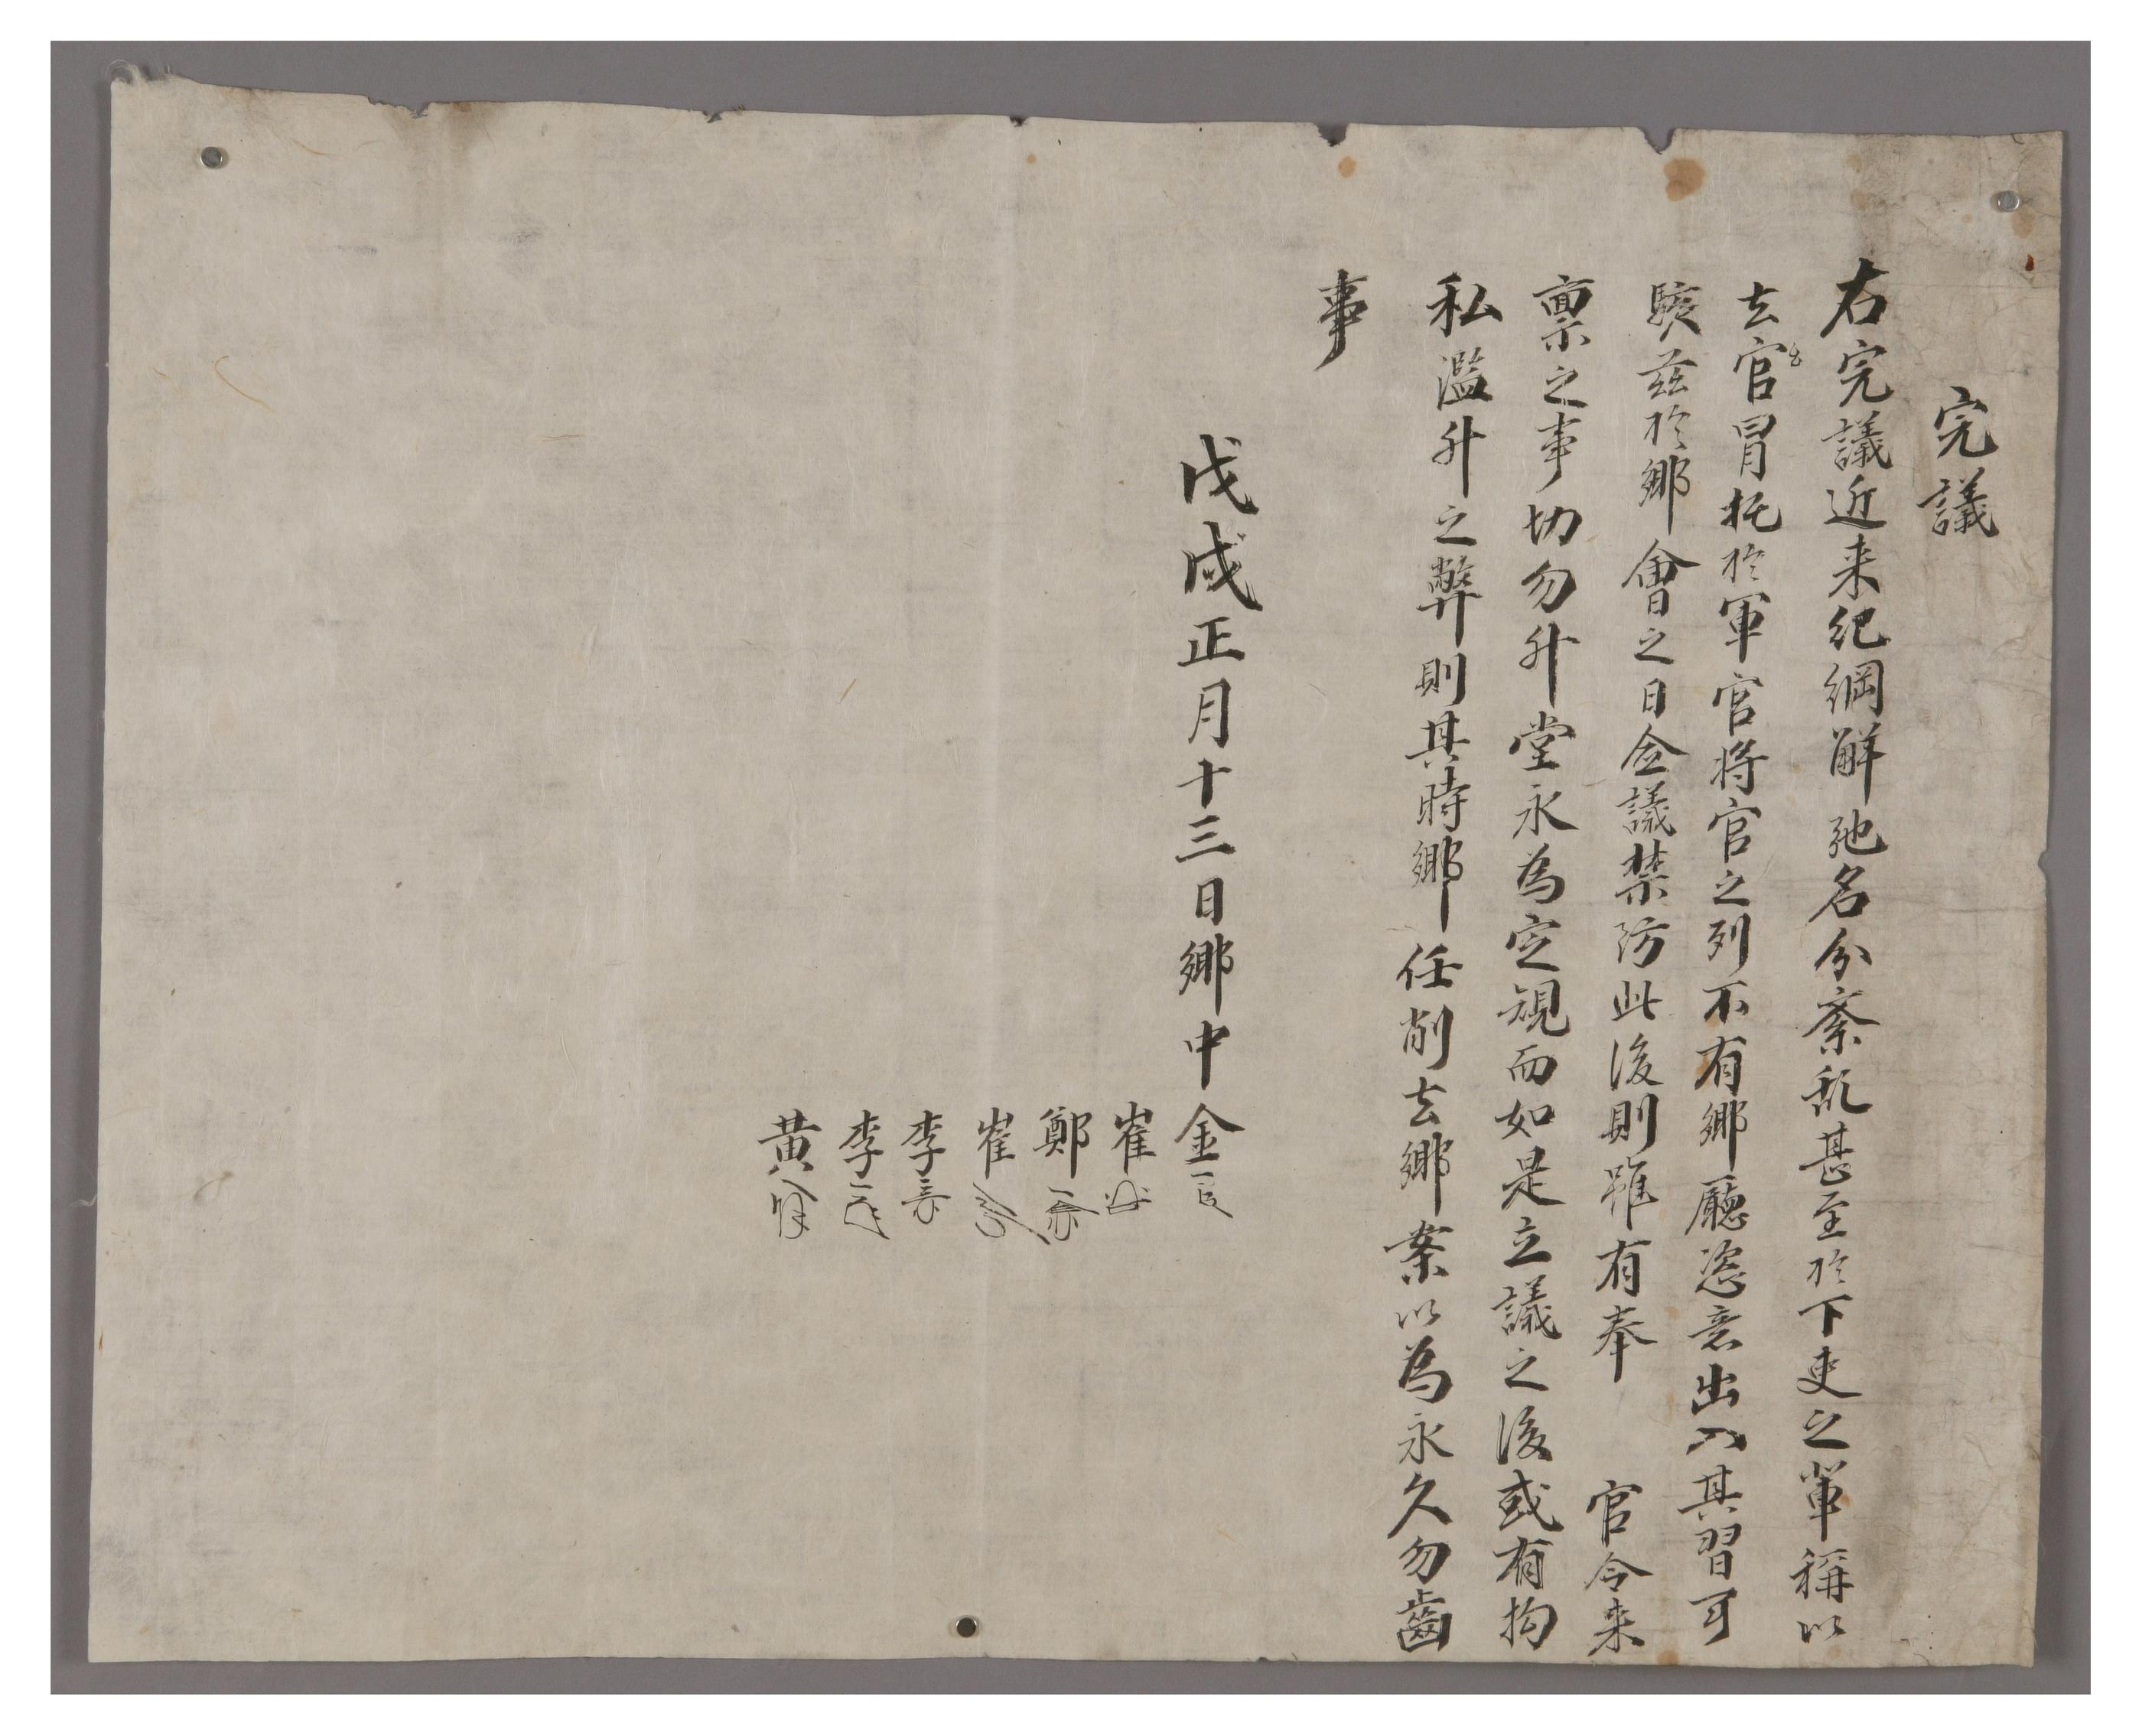 完議
右完議近来紀綱解弛名分紊乱甚至於下吏之輩稱以
去官冒托於軍官将官之列不有鄉廳恣意出入其習可
駭玆於鄉會之日僉議禁防此後則雖有奉 官令来
稟之事切勿升堂永為定規而如是立議之後或有拘
私濫升之弊則其時鄉任削去鄉案以為永久勿齒
事
戊戌正月十三日鄉中 金
崔
鄭
崔
李
李
黃